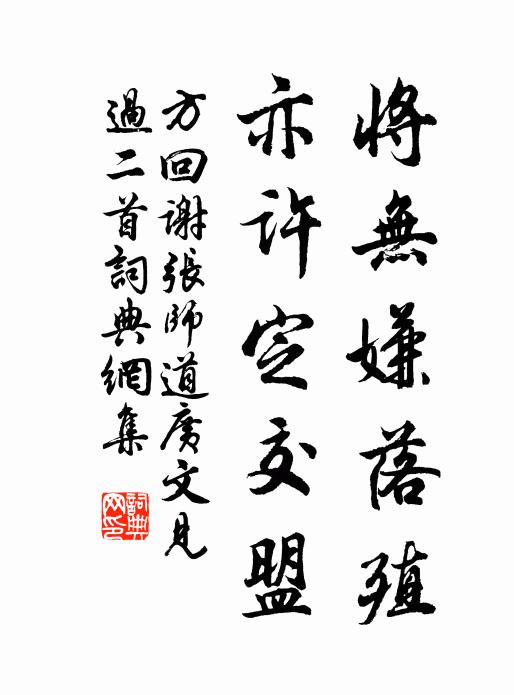 將無嫌落殖
亦許定交盟
方回謝張師道廣文見
過二首詞典網集
詞典網印